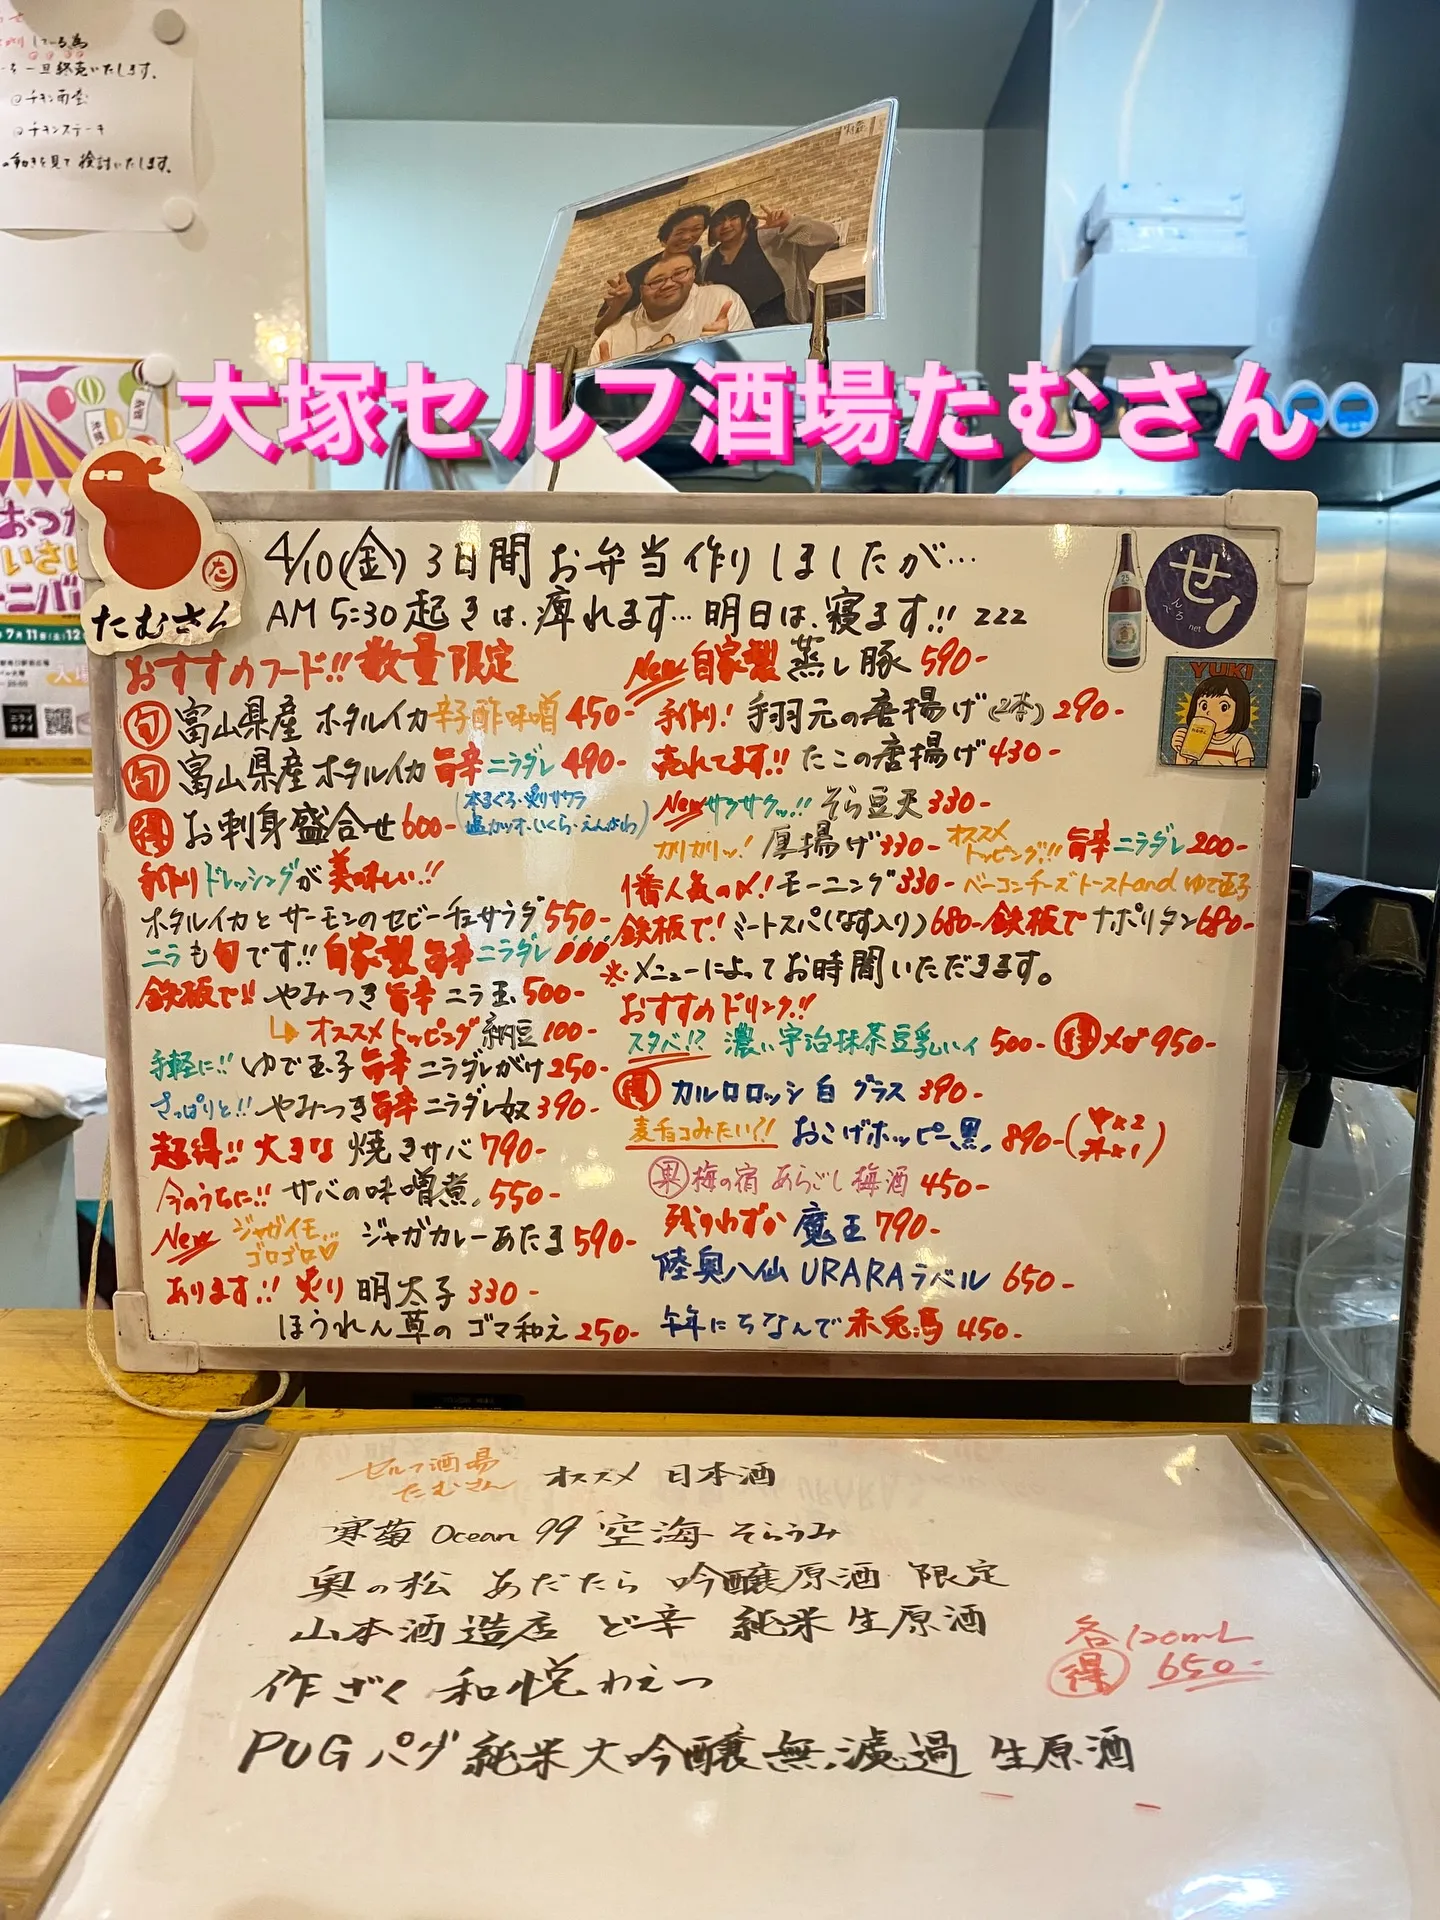 している為
一旦終売いたします。
@チキン南蛮
@チキンステーキ
の動きを見て検討いたします。
大塚セルフ酒場たむさん
おつか
いさい
ーニバル
た
たむさん
せ
んでろ
net
YUKI
4/10(金) 3日間お弁当作りしましたが…
AM 5:30起きは、痺れます…明日は、寝ます!! zzz
おすすめフード!! 数量限定
旬 富山県産 ホタルイカ 辛子酢味噌 450-
旬 富山県産 ホタルイカ 旨辛ニラダレ 490-
得 お刺身盛合せ 600- (本まぐろ・炙りサワラ
塩カツオ・いくら・えんがわ)
手作りドレッシングが美味しい!!
ホタルイカとサーモンのセビーチェサラダ 550-
ニラも旬です!! 自家製 旨辛ニラダレ
鉄板で!! やみつき旨辛ニラ玉 500-
オススメトッピング 納豆 100-
手軽に!! ゆで玉子 旨辛ニラダレがけ 250-
さっぱりと!! やみつき旨辛ニラダレ奴 390-
超得!! 大きな 焼きサバ 790-
今のうちに!! サバの味噌煮 550-
New ジャガイモ… ゴロゴロ♡ ジャガカレーあたま 590-
あります!! 炙り 明太子 330-
ほうれん草のゴマ和え 250-
New 自家製 蒸し豚 590-
手作り! 手羽元の唐揚げ(2本) 290-
売れてます!! たこの唐揚げ 430-
New サクサクッ!! そら豆天 330-
カリカリッ! 厚揚げ 330- オススメトッピング!! 旨辛ニラダレ 200-
1番人気の〆! モーニング 330- ベーコンチーズトーストand ゆで玉子
鉄板で! ミートスパ(なす入り) 680- 鉄板でナポリタン 680-
※メニューによってお時間いただきます。
おすすめドリンク!!
スタバ!? 濃い宇治抹茶豆乳ハイ 500- 得 メガ 950-
得 カルロロッシ 白 グラス 390-
麦チョコみたい?! おこげホッピー黒 890- (中×2
外×1)
果 梅の宿 あらごし梅酒 450-
残りわずか 魔王 790-
陸奥八仙 URARAラベル 650-
午年にちなんで 赤兎馬 450-
セルフ酒場
たむさん オススメ 日本酒
寒菊 Ocean 99 空海 そらうみ
奥の松 あだたら 吟醸原酒 限定
山本酒造店 ど辛 純米生原酒
作 ざく 和悦 わえつ
PUG パグ 純米大吟醸無濾過 生原酒
各120mL
得 650-